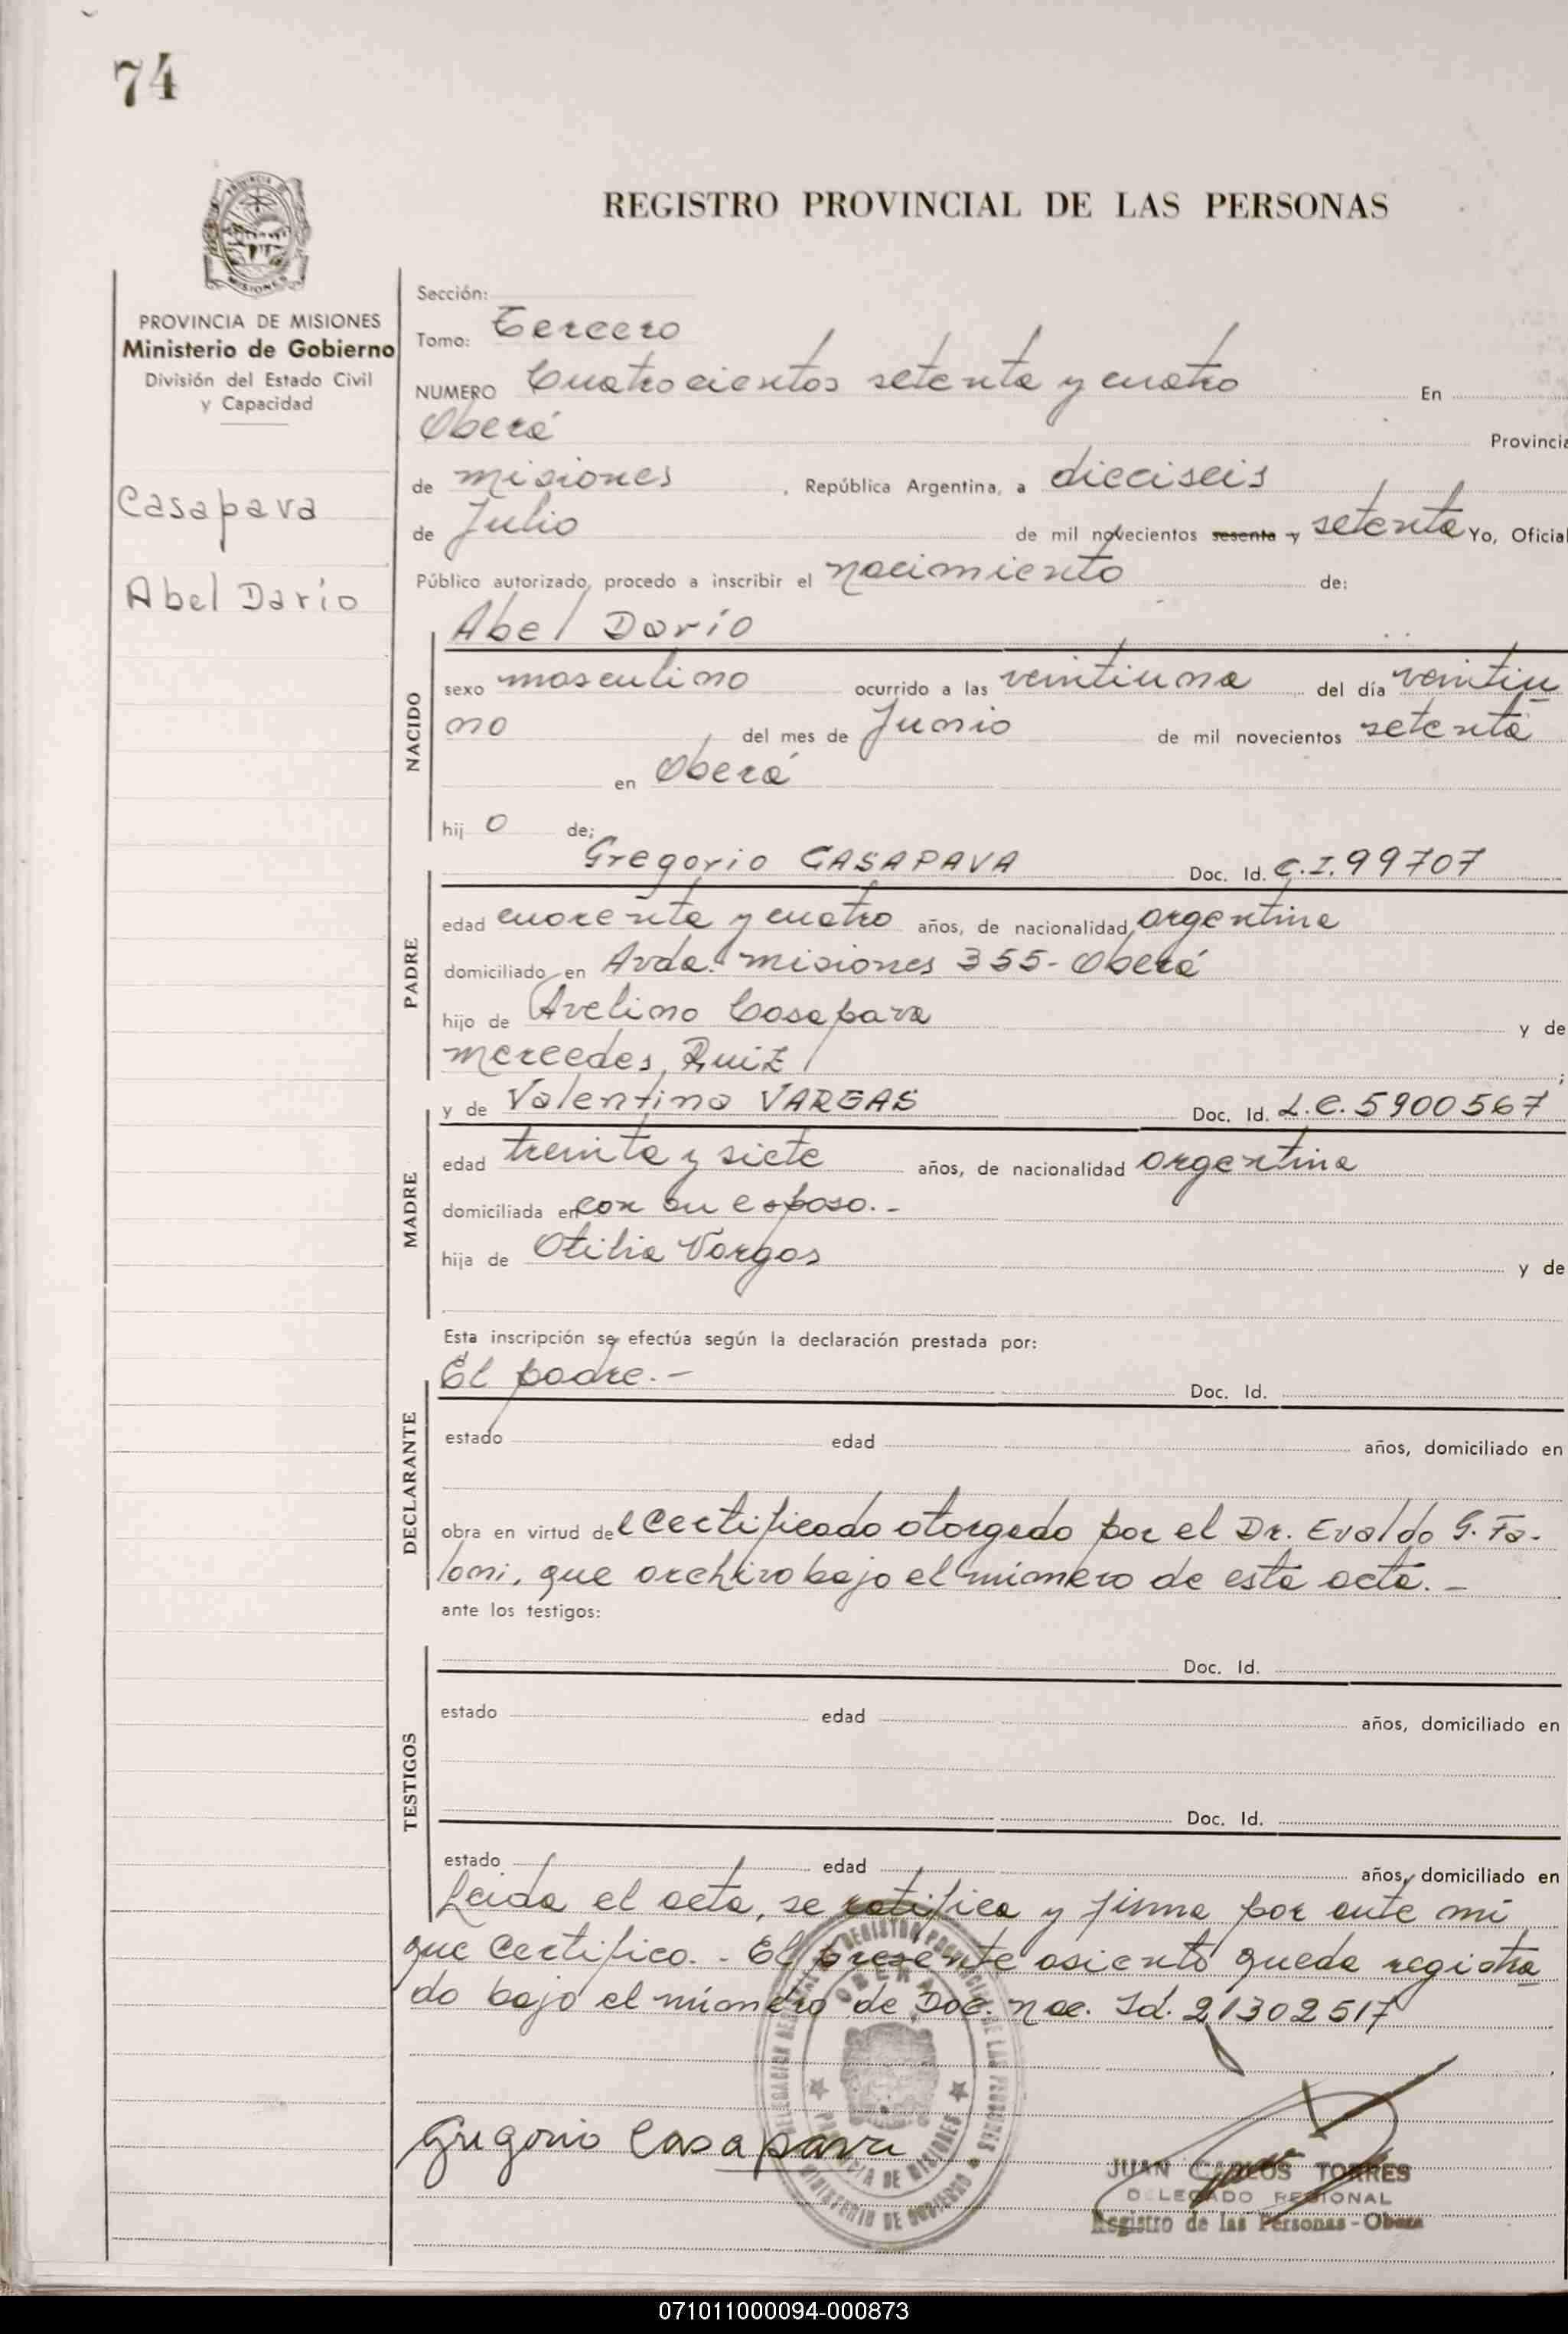 74
REGISTRO PROVINCIAL DE LAS PERSONAS
MISIONES
PROVINCIA DE MISIONES
Ministerio de Gobierno
División del Estado Civil
y Capacidad
Casapava
Abel Darío
Sección:
Tomo: Tercero
NUMERO Cuatrocientos setenta y cuatro En
Oberá Provincia
de Misiones , República Argentina, a dieciseis
de Julio de mil novecientos sesenta y setenta Yo, Oficial
Público autorizado, procedo a inscribir el nacimiento de:
Abel Darío
NACIDO
sexo masculino ocurrido a las veintiuna del día veintiu
no del mes de Junio de mil novecientos setenta
en Oberá
hij o de;
PADRE
Gregorio CASAPAVA Doc. Id. C.I. 99707
edad cuarenta y cuatro años, de nacionalidad argentina
domiciliado en Avda. Misiones 355- Oberá
hijo de Avelino Casapava y de
Mercedes Ruiz ;
MADRE
y de Valentina VARGAS Doc. Id. L.C. 5900567
edad treinta y siete años, de nacionalidad argentina
domiciliada en con su esposo.-
hija de Otilia Vargas y de
Esta inscripción se efectúa según la declaración prestada por:
DECLARANTE
El padre.- Doc. Id.
estado edad años, domiciliado en
obra en virtud del certificado otorgado por el Dr. Evaldo G. Fa-
loni, que archivo bajo el número de esta acta.-
ante los testigos:
TESTIGOS
Doc. Id.
estado edad años, domiciliado en
Doc. Id.
estado edad años, domiciliado en
Leida el acta, se ratifica y firma por ante mí
que certifico.- El presente asiento queda registra
do bajo el número de Doc. Nac. Id. 21302517
Gregorio Casapava
OBERA
PROVINCIA DE MISIONES
MINISTERIO DE GOBIERNO
JUAN CARLOS TORRES
DELEGADO REGIONAL
Registro de las Personas - Obera
071011000094-000873